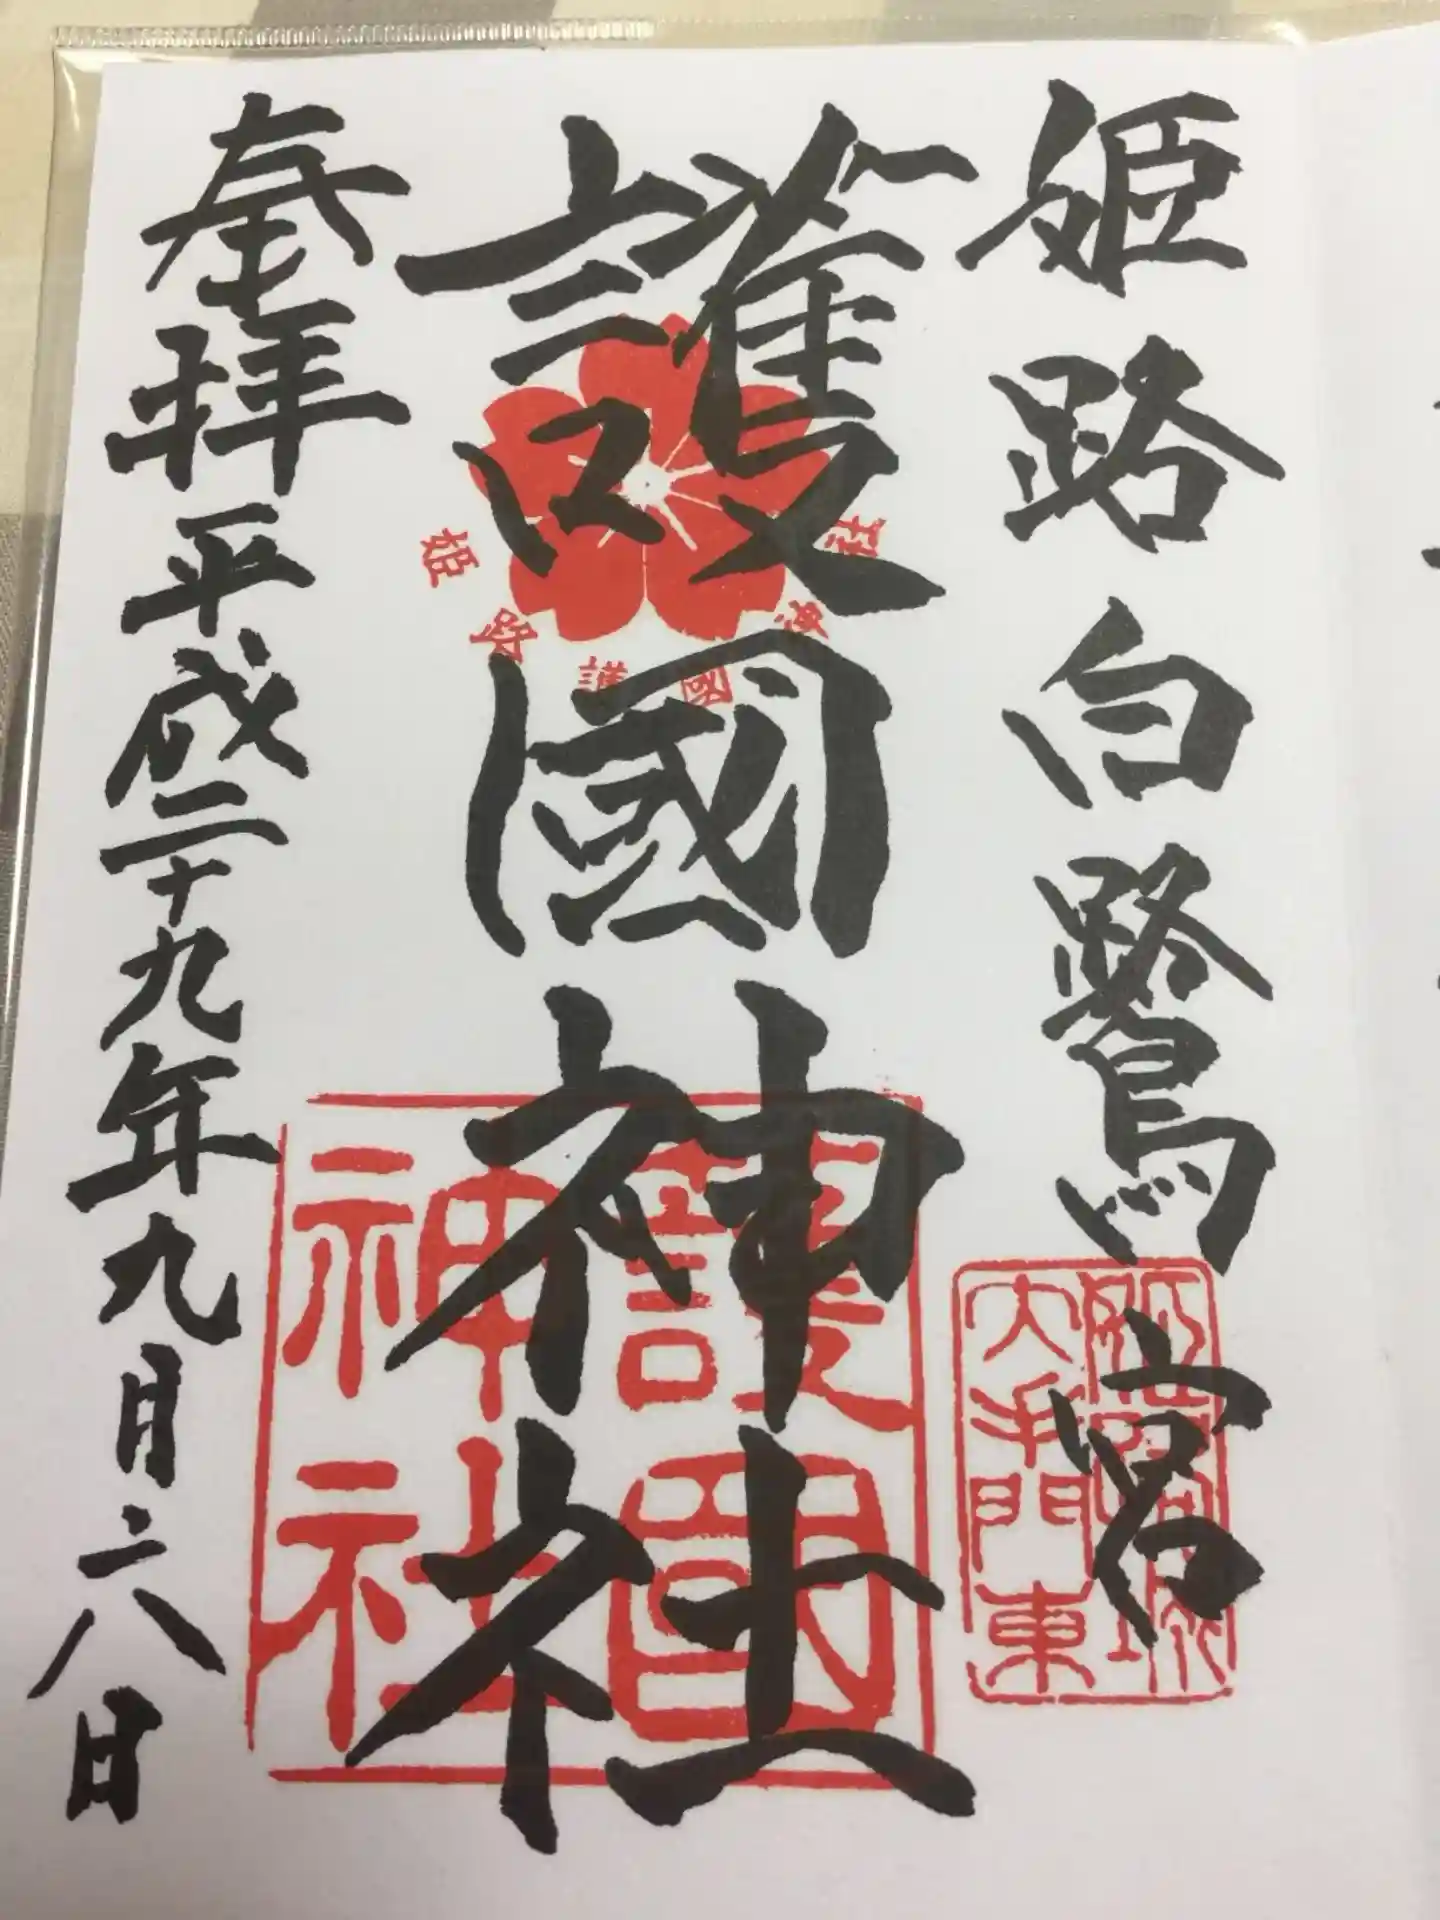 姫路白鷺宮
護國神社
奉拝
平成二十九年九月二六日
姫路護國神社
護國神社
大手門東